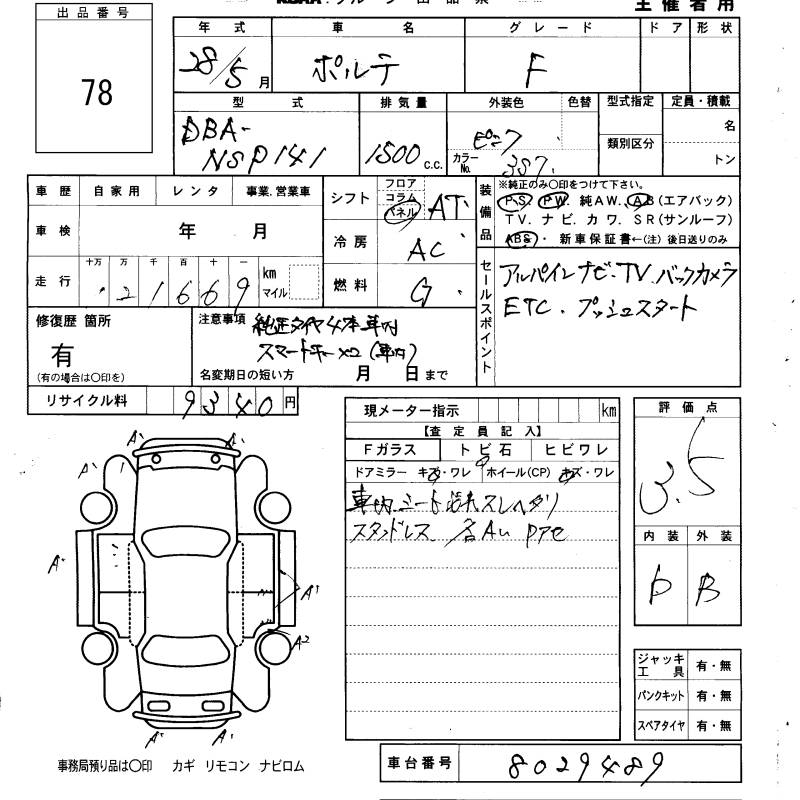 出品番号
78
主催者用
年式 車名 グレード ドア 形状
28/5月 ポルテ F
型式 排気量 外装色 色替 型式指定 定員・積載
DBA-
NSP141 1500 c.c. ピンク カラーNo. 3S7 類別区分 名
トン
車歴 自家用 レンタ 事業.営業車
車検 年 月
走行 十万 万 千 百 十 一 km マイル
21669
シフト フロア コラム パネル AT
冷房 AC
燃料 G
装備品 ※純正のみ〇印をつけて下さい。
P.S. P.W. 純AW. AB(エアバック)
T.V. ナビ. カワ. SR(サンルーフ)
ABS・ 新車保証書←(注) 後日送りのみ
セールスポイント
アルパインナビ・TV.バックカメラ
ETC.プッシュスタート
修復歴 箇所
有
(有の場合は〇印を)
注意事項 純正タイヤ4本車内
スマートキー×2(車内)
名変期日の短い方 月 日まで
リサイクル料 9340円
現メーター指示 km
【査定員記入】
Fガラス トビ石 ヒビワレ
ドアミラー キズ・ワレ ホイール(CP) キズ・ワレ
車内シート汚れスレヘタリ
スタッドレス
評価点
3.5
内装 外装
D B
A' A'
A' A'
A' A'
A2
A' A'
ジャッキ工具 有・無
パンクキット 有・無
スペアタイヤ 有・無
事務局預り品は〇印 カギ リモコン ナビロム
車台番号 8029489